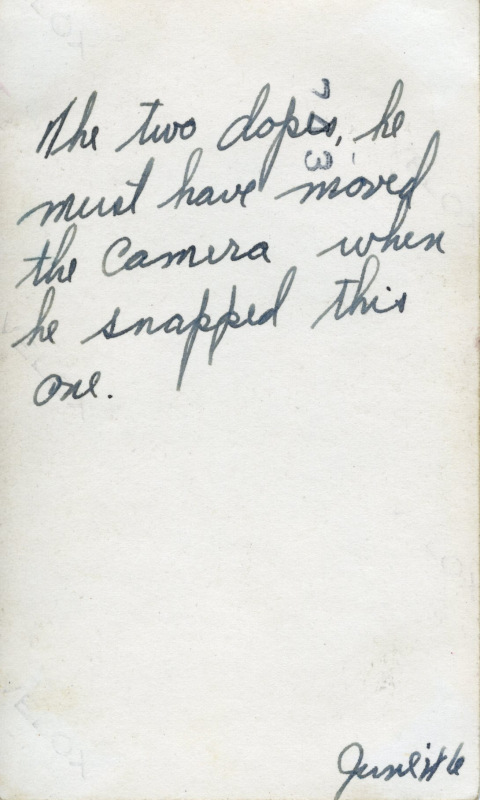 The two dopes, he
must have moved
the Camera when
he snapped this
one.
June '46